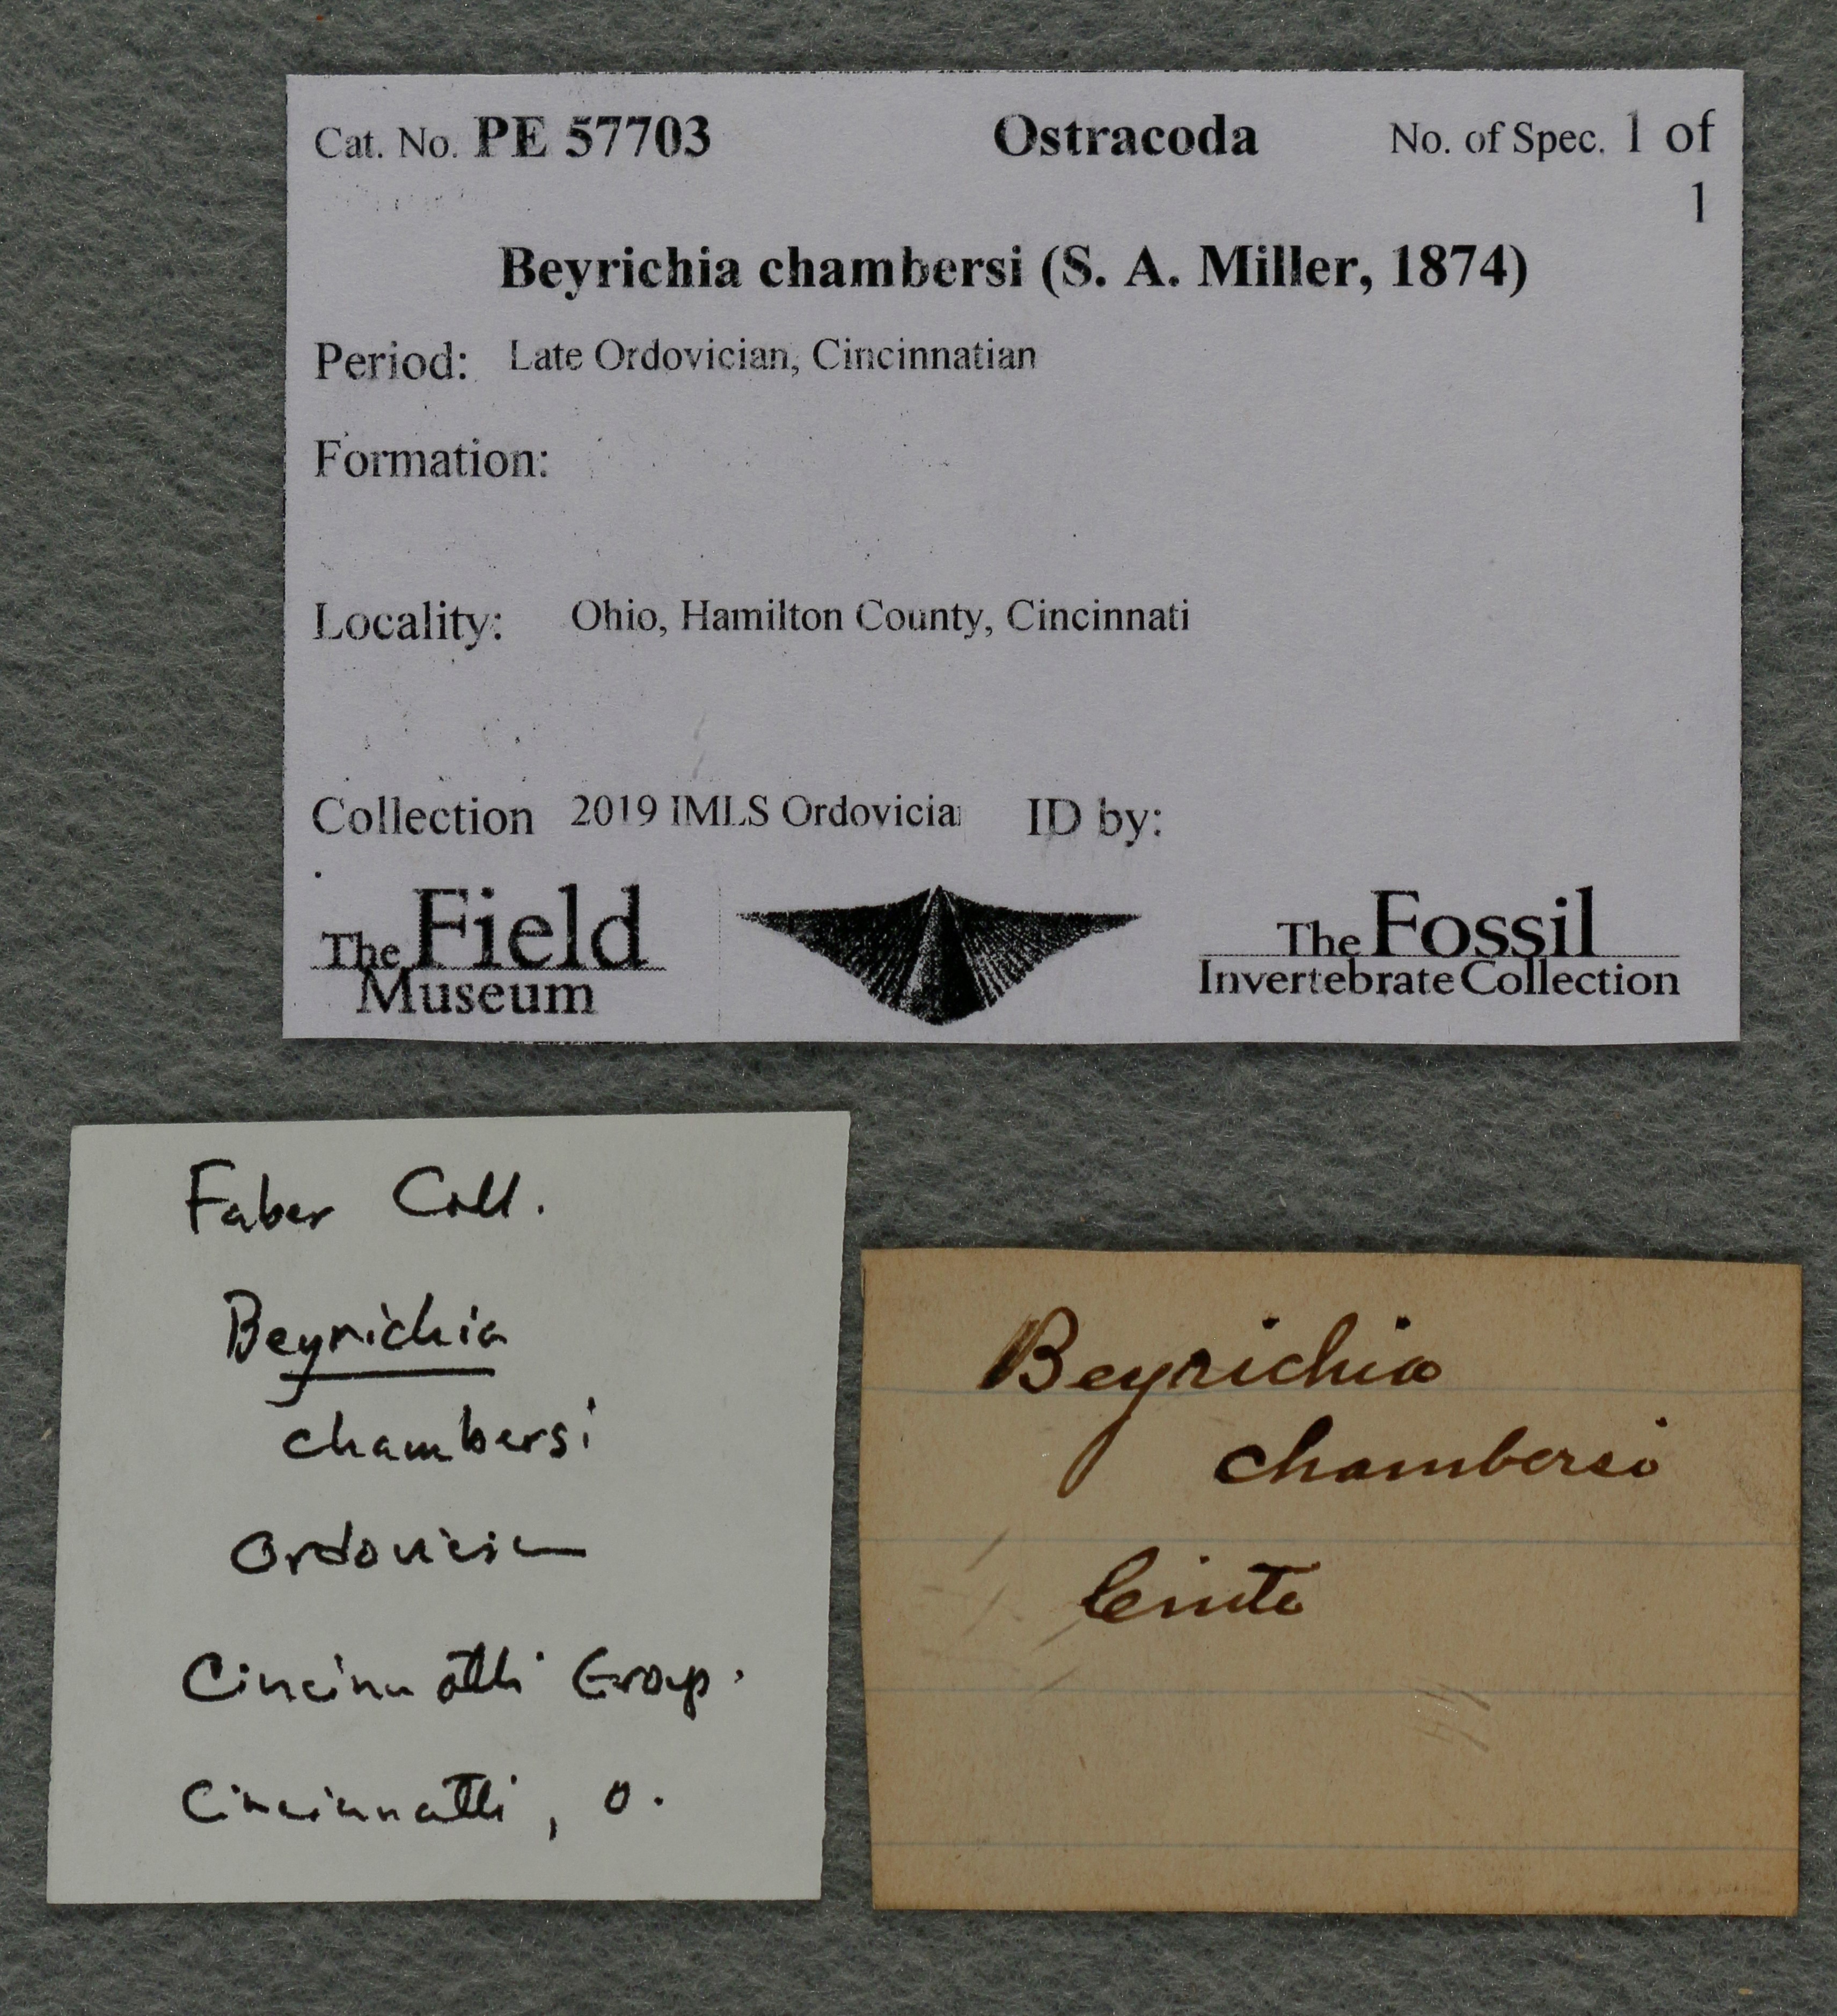 Cat. No. PE 57703 Ostracoda No. of Spec. 1 of
1
Beyrichia chambersi (S. A. Miller, 1874)
Period: Late Ordovician, Cincinnatian
Formation:
Locality: Ohio, Hamilton County, Cincinnati
Collection 2019 IMLS Ordovician ID by:
The Field
Museum
The Fossil
Invertebrate Collection
Faber Coll.
Beyrichia
chambersi
Ordovician
Cincinnatti Group.
Cincinnatti, O.
Beyrichia
chambersi